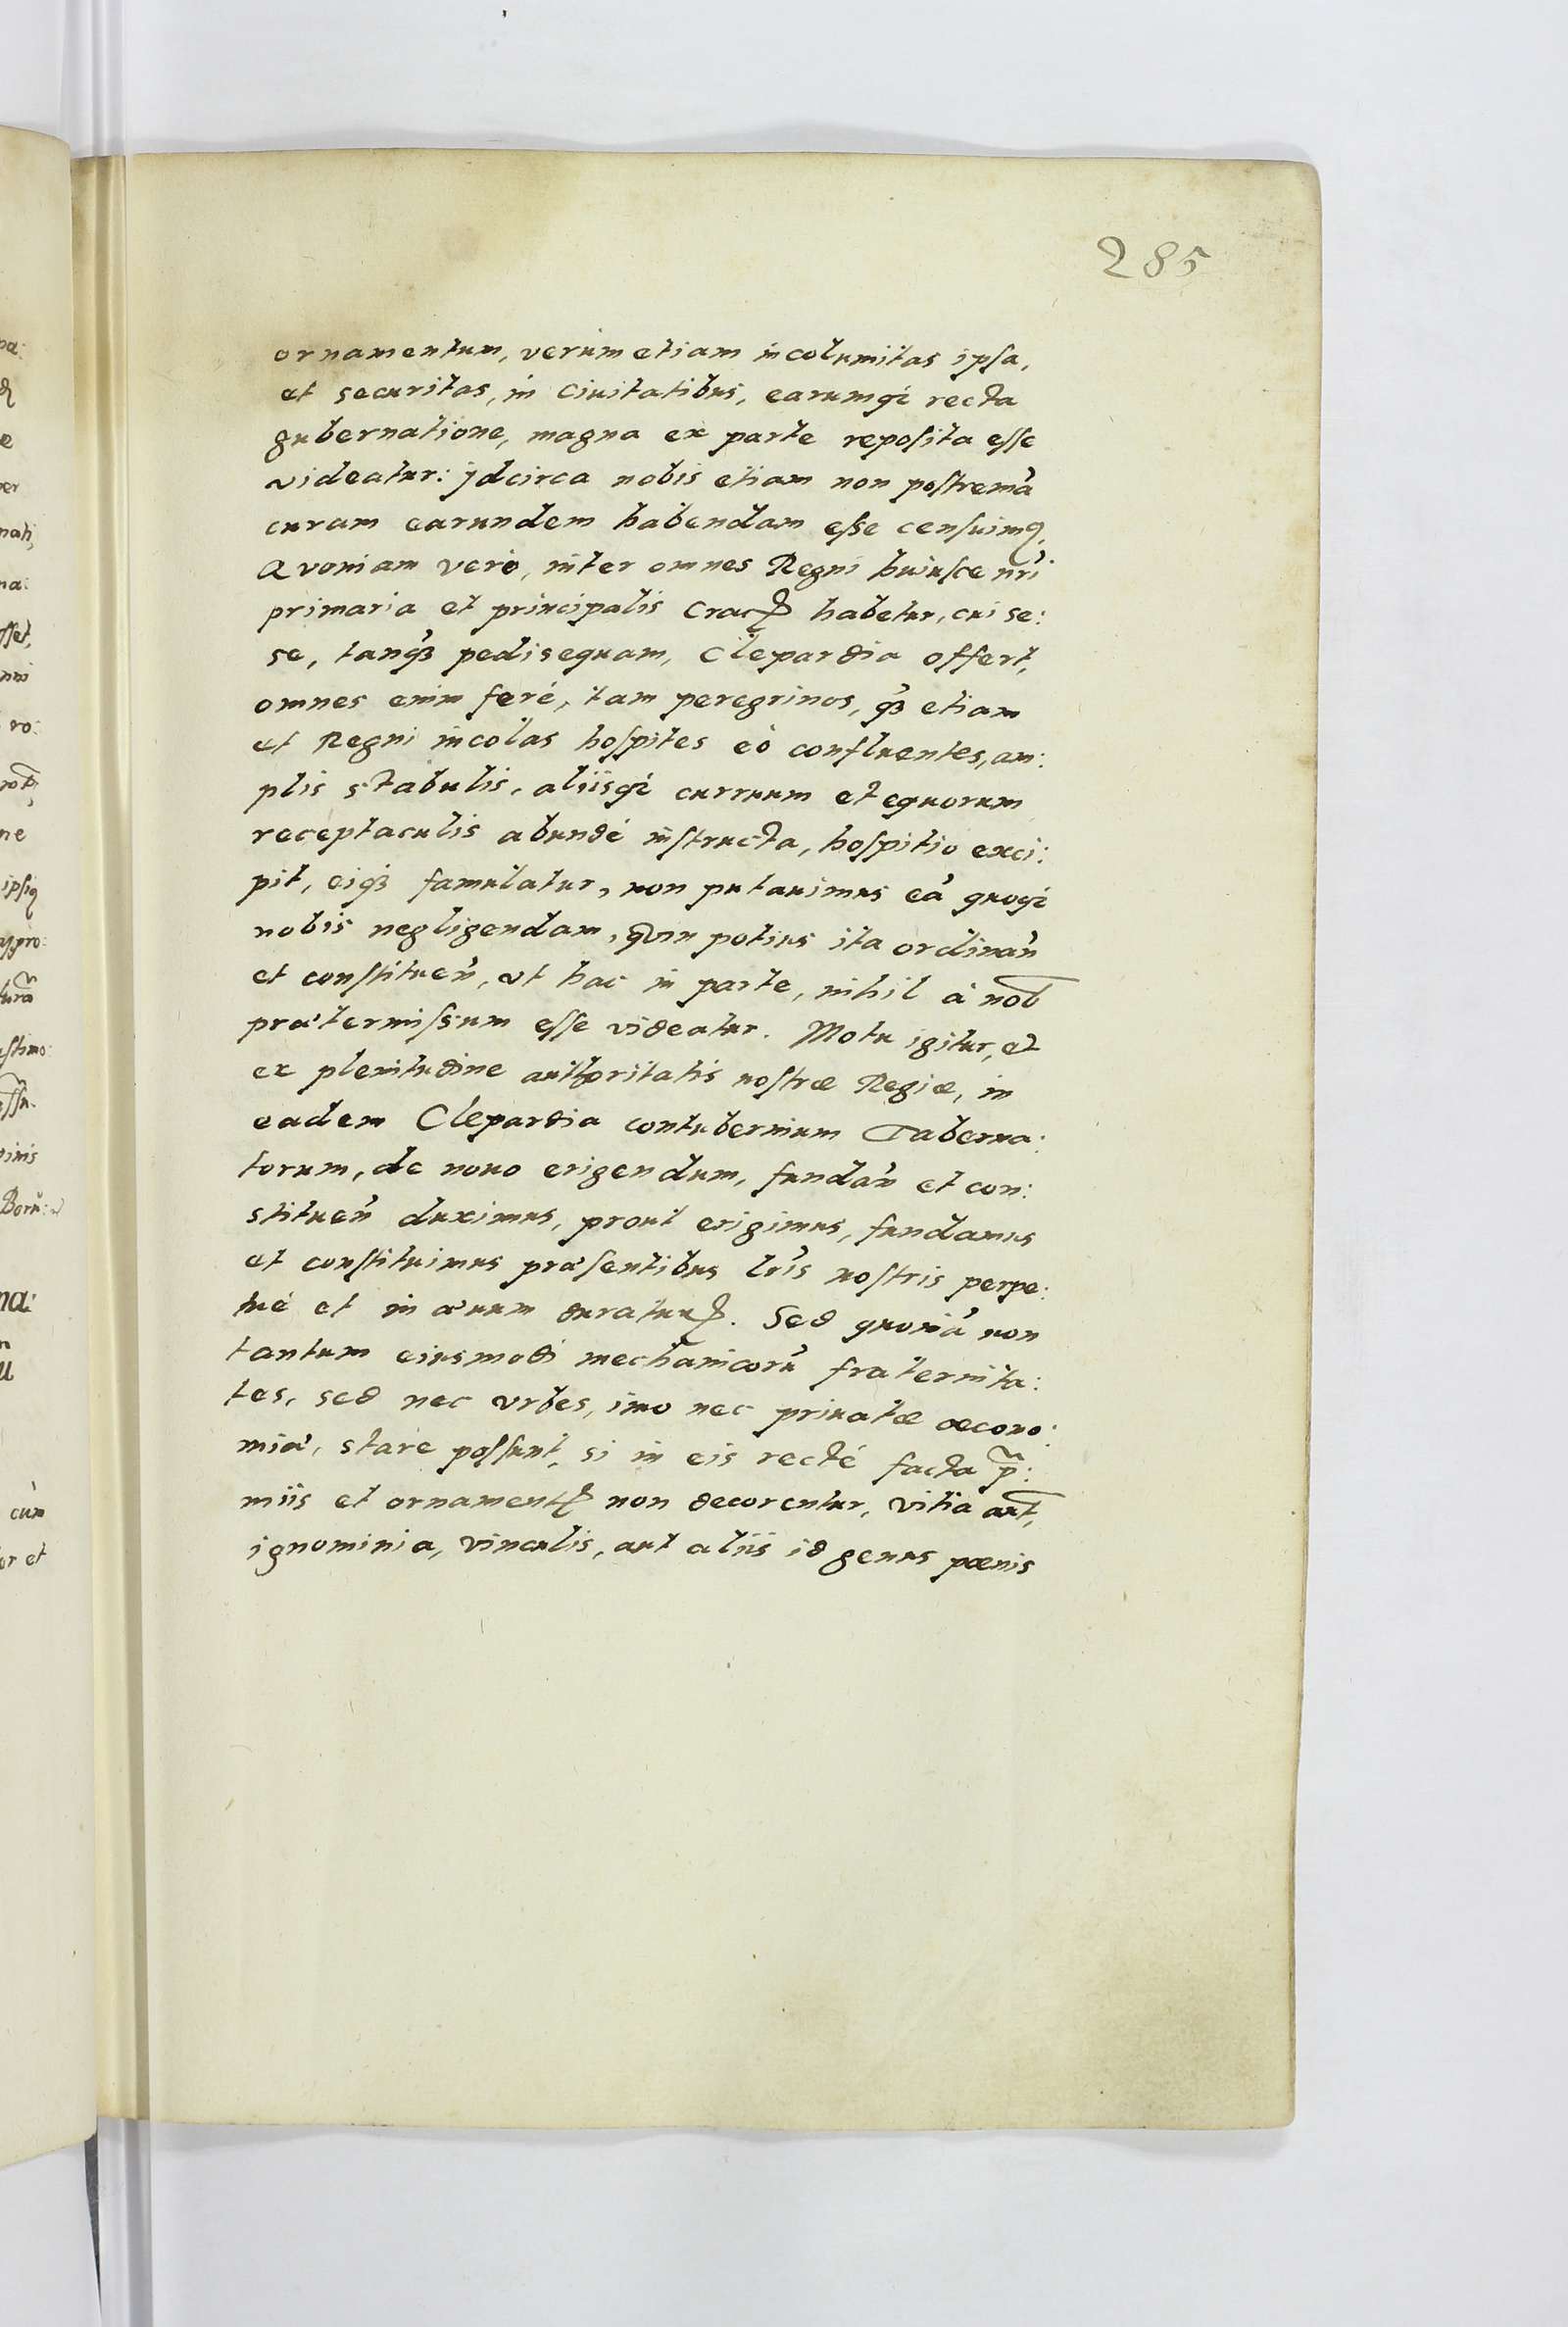 285
ornamentum, verùm etiam incolumitas ipsa,
et securitas, in Ciuitatibus, earumq́; recta
gubernatione, magna ex parte reposita esse
videatur: jdcirca nobis etiam non postremã
curam earundem habendam esse censuimꝰ.
Quoniam verò, inter omnes Regni huiusce nr̃i
primaria et principalis Cracꝭ habetur, cui se:
se, tanqꝫ̃ pedisequam, Clepardia offert,
omnes enim ferè, tam peregrinos, qꝫ̃ etiam
et Regni incolas hospites eò confluentes, am:
plis stabulis, aliisq́; curruum et equorum
receptaculis abundè instructa, hospitio exci:
pit, eiqꝫ famulatur, non putauimus eã quoq́;
nobis negligendam, quin potius ita ordinañ
et constitueñ, vt hac in parte, nihil à nob̃
prætermissum esse videatur. Motu igitur, et
ex plenitudine authoritatis nostræ Regiæ, in
eadem Clepardia contubernium Taberna:
torum, de nouo erigendum, fundañ et con:
stitueñ duximus, prout erigimus, fundamus
et constituimus præsentibus lr̃is nostris perpe:
tuè et in æuum duratuꝝ. Sed quoniã non
tantum eiusmodi mechanicorũ fraternita:
tes, sed nec vrbes, imo nec priuatæ œcono:
miæ, stare possunt, si in eis rectè facta p̃:
miis et ornamentꝭ non decorentur, vitia aut̃,
ignominia, vinculis, aut aliis id genus pœnis